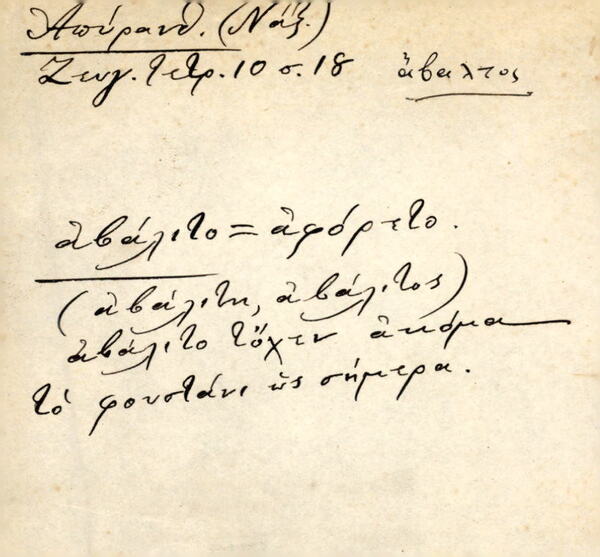 Ἀπύρανθ. (Νάξ.)
Ζευγ. Τετρ. 10 σ. 18 ἄβαλτος
ἀβάλιτο = ἀφόρετο.
(ἀβάλιτη, ἀβάλιτος)
ἀβάλιτο τὄχεν ἀκόμα
τό φουστάνι ὣς σήμερα.